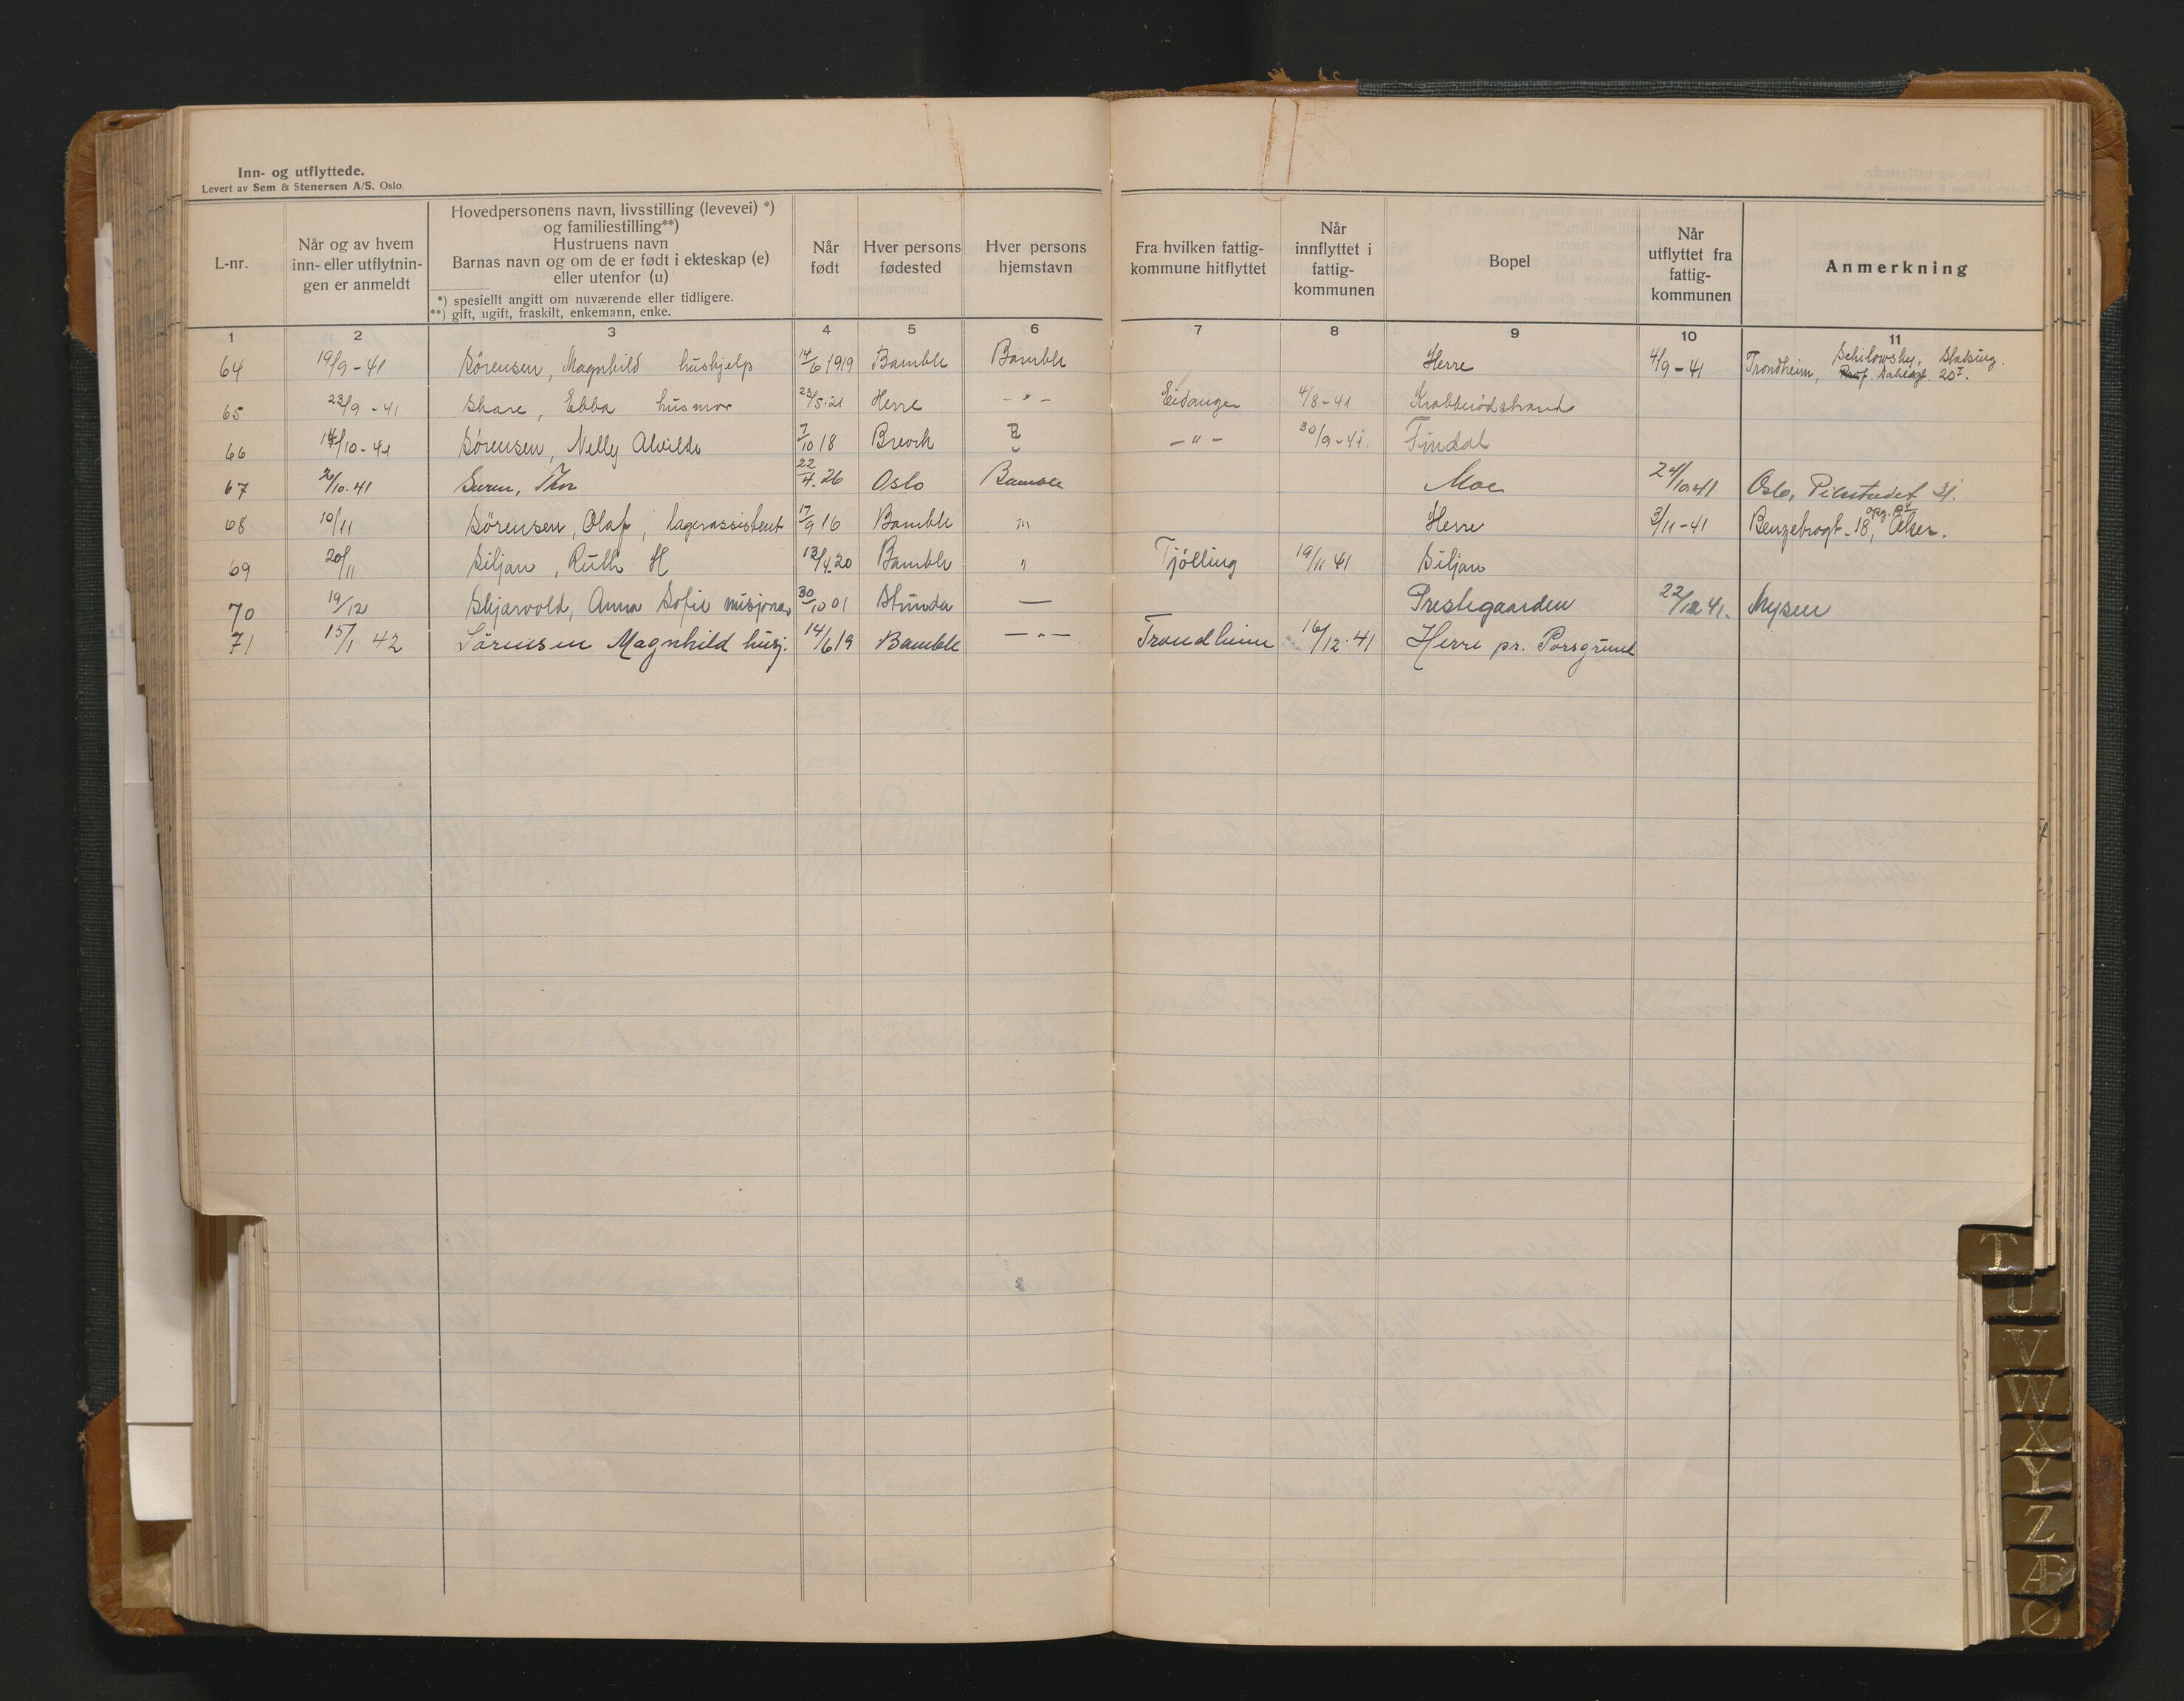 Inn- og utflyttede.
Levert av Sem & Stenersen A/S, Oslo.
L-nr.
Når og av hvem
inn- eller utflytnin-
gen er anmeldt
Hovedpersonens navn, livsstilling (levevei) *)
og familiestilling**)
Hustruens navn
Barnas navn og om de er født i ekteskap (e)
eller utenfor (u)
*) spesiellt angitt om nuværende eller tidligere.
**) gift, ugift, fraskilt, enkemann, enke.
Når
født
Hver persons
fødested
Hver persons
hjemstavn
Fra hvilken fattig-
kommune hitflyttet
Når
innflyttet i
fattig-
kommunen
Bopel
Når
utflyttet fra
fattig-
kommunen
Anmerkning
1 2 3 4 5 6 7 8 9 10 11
64 19/9-41 Sørensen, Magnhild hushjelp 14/6 1919 Bamble Bamble Herre 4/9-41 Trondheim, 20I.
65 23/9-41 Skare, Ebba husmor 23/5.21 Herre -"- Eidanger 4/8-41 Krabberødstrand
66 14/10-41 Sørensen, Nelly Alvilde 7/10 18 Brevik B -"- 30/9-41. Findal
67 /10.41 Thor 22/4.26 Oslo Bamble Moe 24/10 41 Oslo, 31.
68 10/11 Sørensen, Olaf, lagerassistent 17/9 16 Bamble "' Herre 3/11-41 18, Aker.
69 20/11 Siljan, Ruth H 13/4.20 Bamble " Tjølling 19/11 41 Siljan
70 19/12 Skjærvold, Anna Sofie misjonær 30/10 01 Strinda — Prestegaarden 22/12 41. Mysen
71 15/1 42 Sörensen Magnhild husj. 14/6 19 Bamble -"- Trondheim 16/12.41 Herre pr. Porsgrund
T
U
V
W
X
Y
Z
Æ
Ø